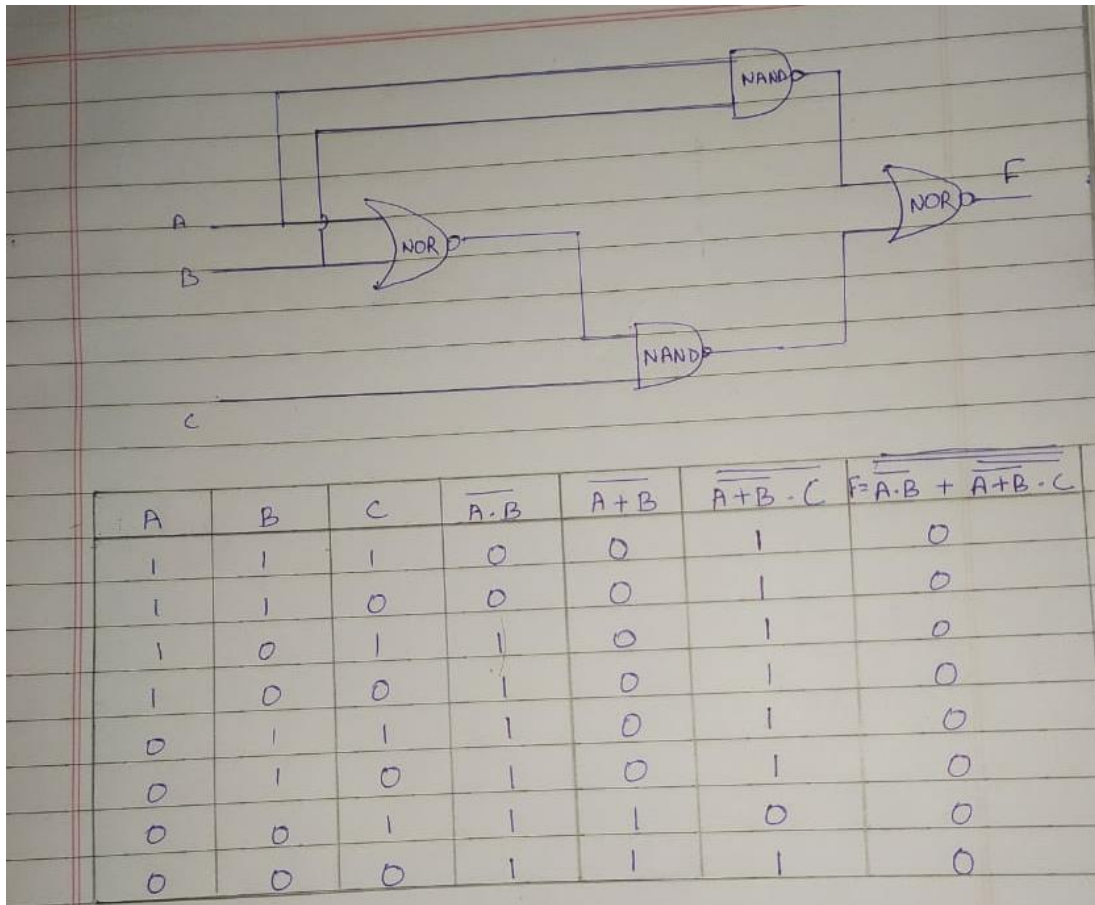 NAND
F
A
NOR
NOR
B
NAND
C
A B C A̅.̅B̅ A̅ ̅+̅ ̅B̅ \overline{\overline{A+B} . C} F = \overline{\overline{A.B} + \overline{\overline{A+B} . C}}
1 1 1 0 0 1 0
1 1 0 0 0 1 0
1 0 1 1 0 1 0
1 0 0 1 0 1 0
0 1 1 1 0 1 0
0 1 0 1 0 1 0
0 0 1 1 1 0 0
0 0 0 1 1 1 0